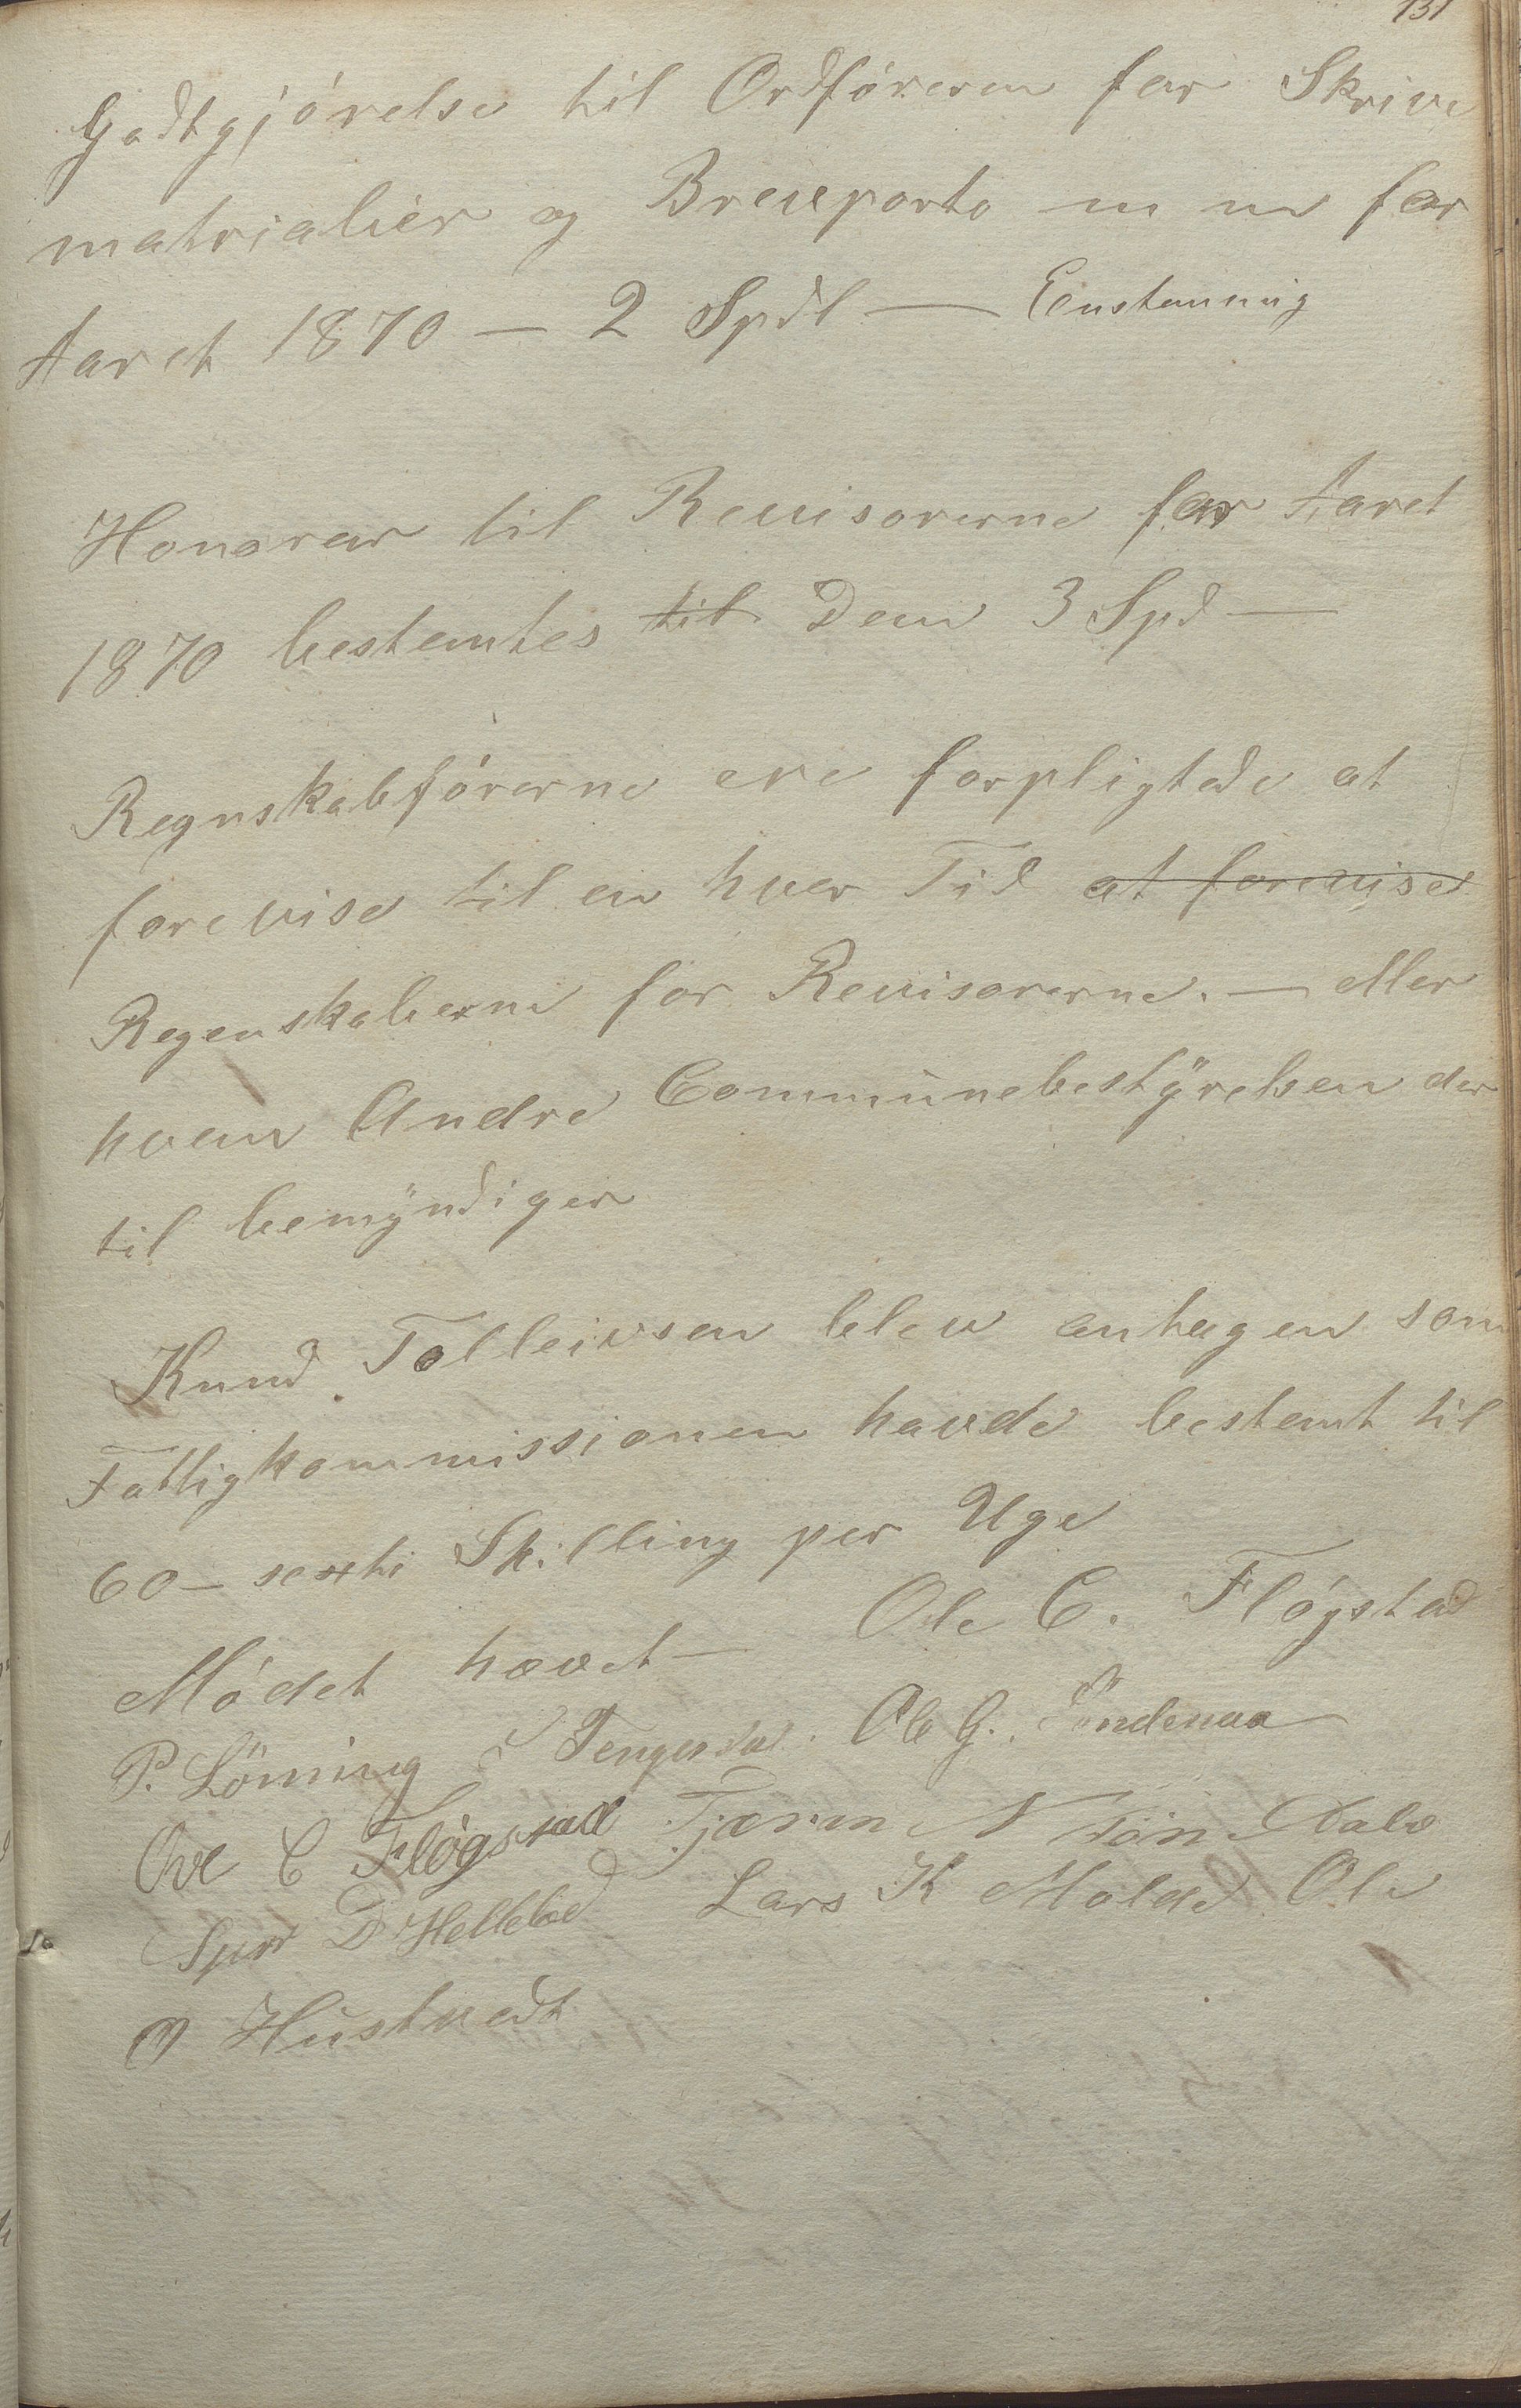 131
Godtgjørelse til Ordføreren for Skrive
matrialier og Brevporto m m for
Aaret 1870 — 2 Spdl — Eenstemmig
Honorar til Revisorerne for Aaret
1870 bestemtes til Dem 3 Spd —
Regnskabførerne ere forpligtede at
forevise til en hver Tid at forevise
Regenskaberne for Revisorerne. — eller
hvem Andre Communebestÿrelsen der
til bemÿndiger
Knud Tolleivsen blev antagen som
Fattigkommissionen havde bestemt til
60 — sexti Skilling per Uge
Ole C. Fløgstad
Mødet hævet —
P. Löning Tengesdal. Ole G. Söndenaa
Ole C Fløgstad Tjærin N
Lars K Molde Ole
D Hellebø
Hustvedt